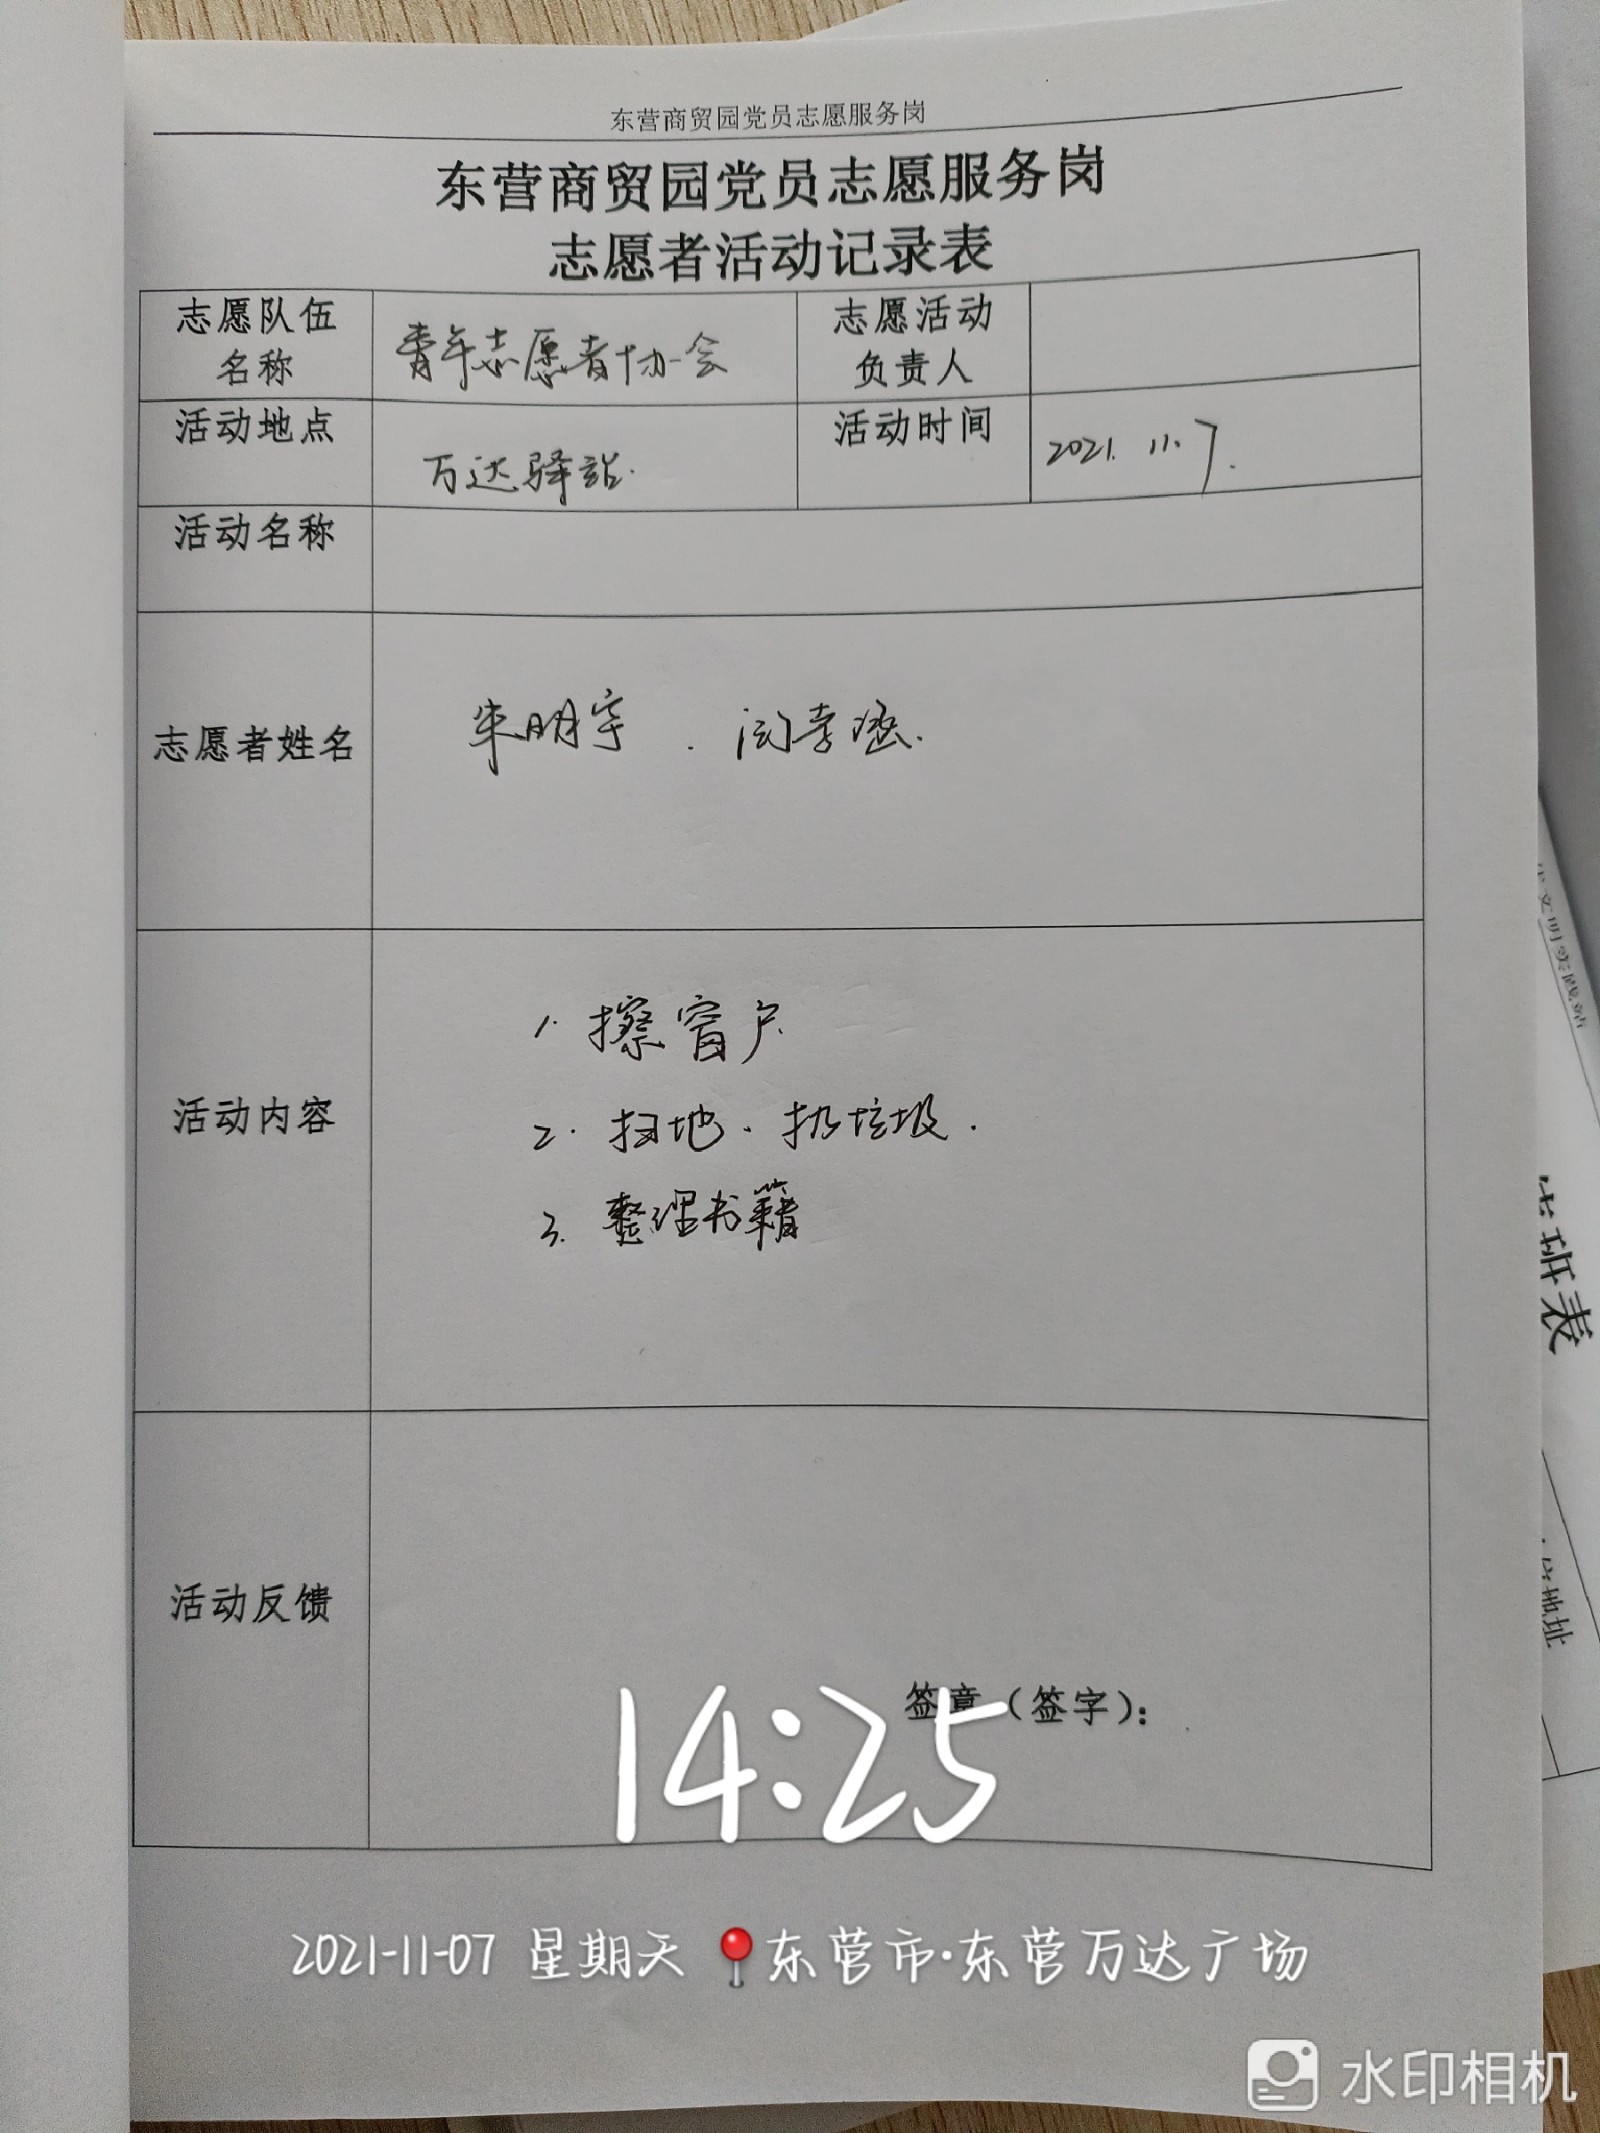 东营商贸园党员志愿服务岗
东营商贸园党员志愿服务岗
志愿者活动记录表
志愿队伍名称 青年志愿者协会 志愿活动负责人
活动地点 万达驿站. 活动时间 2021. 11. 7.
活动名称
志愿者姓名
活动内容
1. 擦窗户.
2. 扫地. 扔垃圾.
3. 整理书籍
活动反馈
签章（签字）：
14:25
2021-11-07 星期天 东营市·东营万达广场
水印相机
文明实践站
班表
地址